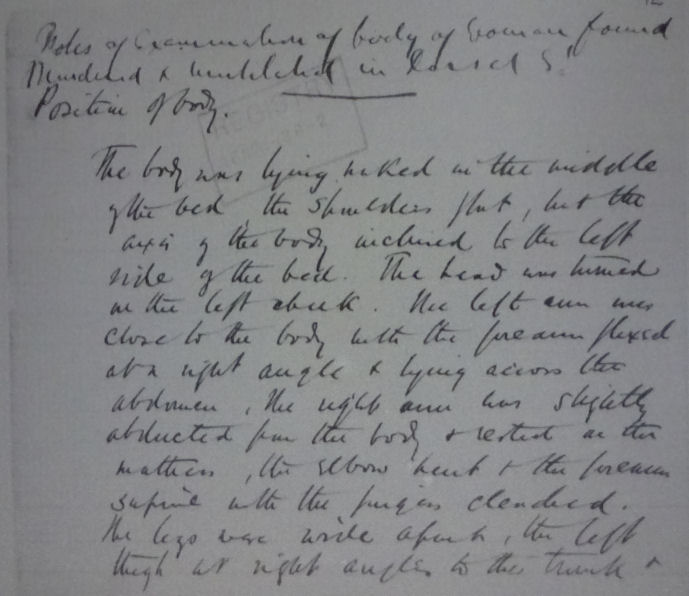 Notes of Examination of body of Woman found
Murdered & mutilated in Dorset St.
Position of body.
The body was lying naked in the middle
of the bed, the shoulders flat, but the
axis of the body inclined to the left
side of the bed. The head was turned
on the left cheek. The left arm was
close to the body with the forearm flexed
at a right angle & lying across the
abdomen, the right arm was slightly
abducted from the body & rested on the
mattress, the elbow bent & the forearm
supine with the fingers clenched.
The legs were wide apart, the left
thigh at right angles to the trunk &